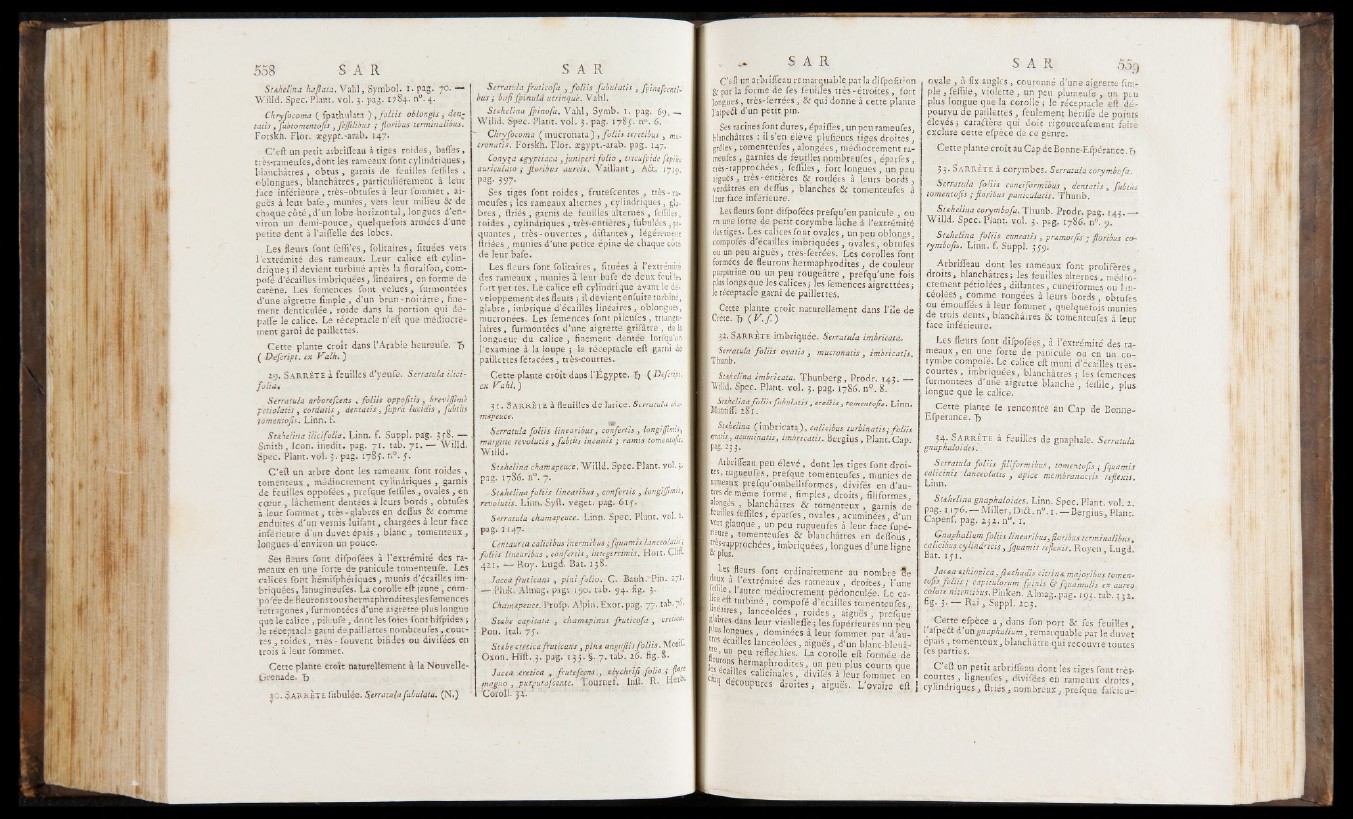 558 S A R
Stæhelina hastata. Vahl, Symbol. 1. pag. 70. —
Willd. Spec. Plant. vol. 3. pag. 1784. n°. 4.
Chrysocoma ( spathulata ), foliis oblongis, den-
tatis, subtomentosis, sessilibus ; floribus terminalibus.
Forskh. Flor. ægypt.-arab. 147.
C'est un petit arbrisseau à tiges roides, basses,
très-rameuses, dont les rameaux sont cylindriques,
blanchâtres, obtus, garnis de feuilles sessiles,
oblongues, blanchâtres, particuliérement à leur
face inférieure, très-obtuses à leur sommet, ai-
guës à leur base, munies, vers leur milieu & de
chaque côté, d'un lobe horizontal, longues d'en-
viron un demi-pouce, quelquefois armées d'une
petite dent à l'aisselle des lobes.
Les fleurs sont sessiles, solitaires, situées vers
l'extrémité des rameaux. Leur calice est cylin-
drique ; il devient turbiné après la floraison, com-
posé d'écailles imbriquées, linéaires, en forme de
carène. Les semences sont velues, surmontées
d'une aigrette simple, d'un brun-noirâtre, fine-
ment denticulée, roide dans la portion qui dé-
passe le calice. Le réceptacle n'est que médiocre-
ment garni de paillettes.
Cette plante croît dans l'Arabie heureuse. ♄
( Descript. ex Valh. )
29. SARRÈTE à feuilles d'yeuse. Serratula ilici-
folia.
Serratula arborescens, foliis oppositis, brevissimè
petiolatis, cordatis, dentatis, suprà lucidis, subtùs
tomentosis. Linn. f.
Stæhelina ilicifolia. Linn. f. Suppl. pag. 358. —
Smith, Icon. inedit. pag. 71. tab. 71. — Willd.
Spec. Plant. vol. 3. pag. 1785. n°. 5.
C'est un arbre dont les rameaux sont roides,
tomenteux, médiocrement cylindriques, garnis
de feuilles opposées, presque sessiles, ovales, en
cœur, lâchement dentées à leurs bords, obtuses
à leur sommet, très-glabres en dessus & comme
enduites d'un vernis luisant, chargées à leur face
inférieure d'un duvet épais, blanc, tomenteux,
longues d'environ un pouce.
Ses fleurs sont disposées à l'extrémité des ra-
meaux en une sorte de panicule tomenteuse. Les
calices sont hémisphériques, munis d'écailles im-
briquées, lanugineuses. La corolle est jaune, com-
posée de fleurons tous hermaphrodites ; les semences
tétragones, surmontées d'une aigrette plus longue
que le calice, pileuse, dont les soies sont bifides ;
le réceptacle garni de paillettes nombreuses, cour-
tes, roides, très-souvent bifides ou divisées en
trois à leur sommet.
Cette plante croît naturellement à la Nouvelle-
Grenade. ♄
30. SARRÈTE subulée. Serratula subulata. (N.)
S A R
Serratula fruticosa, foliis subulatis, spinescenti-
bus ; basi spinulâ utrinquè. Vahl.
Stæhelina spinosa. Vahl, Symb. 1. pag. 69. —
Willd. Spec. Plant. vol. 3. pag. 1785. n°. 6.
Chrysocoma ( mucronata ), foliis teretibus, mu-
cronatis. Forskh. Flor. ægypt.-arab. pag. 147.
Conyza ægyptiaca, juniperi folio, tricuspide
auriculato ; floribus aureis. Vaillant, Act. 1719,
pag. 397.
Ses tiges sont roides, frutescentes, très-ra-
meuses ; les rameaux alternes, cylindriques, gla-
bres, striés, garnis de feuilles alternes, sessiles,
roides, cylindriques, très-entières, subulées, pi-
quantes, très-ouvertes, distantes, légérement
striées, munies d'une petite épine de chaque côté
de leur base.
Les fleurs sont solitaires, situées à l'extrémité
des rameaux, munies à leur base de deux feuilles
fort petites. Le calice est cylindrique avant le dé-
veloppement des fleurs ; il devient ensuite turbiné,
glabre, imbriqué d'écailles linéaires, oblongues,
mucronées. Les semences sont pileuses, triangu-
laires, surmontées d'une aigrette grisâtre, de la
longueur du calice, finement dentée lorsqu'on
l'examine à la loupe ; le réceptacle est garni de
paillettes sétacées, très-courtes.
Cette plante croît dans l'Égypte. ♄ ( Descript.
ex Vahl. )
31. SARRÈTE à feuilles de larice. Serratula cha-
mæpeuce.
Serratula foliis linearibus, confertis, longissimis,
margine revolutis, subtùs incanis ; ramis tomentosis.
Willd.
Stæhelina chamæpeuce. Willd. Spec. Plant. vol. 3.
pag. 1786. n°. 7.
Stæhelina foliis linearibus, confertis, longissimis,
revolutis. Linn. Syst. veget. pag. 615.
Serratula chamæpeuce. Linn. Spec. Plant. vol. 2.
pag. 1147.
Centaurea calicibus inermibus ; squamis lanceolatis ;
foliis linearibus, confertis, integerrimis. Hort. Cliff.
421. — Roy. Lugd. Bat. 138.
Jacea fruticans, pini folio. C. Bauh. Pin. 271.
— Pluk. Almag. pag. 190. tab. 94. fig. 3.
Chamæpeuce. Prosp. Alpin. Exot. pag. 77. tab. 76.
Stæbe capitata, chamæpinus fruticosa, cretica.
Pon. Ital. 75.
Stæbe cretica fruticans, pini angustis foliis. Moris.
Oxon. Hist. 3. pag. 135. §. 7. tab. 26. fig. 8.
Jacea cretica, frutescens, elychrisi folio ; flore
magno, purpurascente. Tournef. Inst. R. Herb.
Coroll. 32.
S A R
C'est un arbrisseau remarquable par la disposition
& par la forme de ses feuilles très-étroites, fort
longues, très-serrées, & qui donne à cette plante
l'aspect d'un petit pin.
Ses racines sont dures, épaisses, un peu rameuses,
blanchâtres : il s'en élève plusieurs tiges droites,
grêles, tomenteuses, alongées, médiocrement ra-
meuses, garnies de feuilles nombreuses, éparses,
très-rapprochées, sessiles, fort longues, un peu
aiguës, très-entières & roulées à leurs bords,
verdâtres en dessus, blanches & tomenteuses à
leur face inférieure.
Les fleurs sont disposées presqu'en panicule, ou
en une sorte de petit corymbe lâche à l'extrémité
des tiges. Les calices sont ovales, un peu oblongs,
composés d'écailles imbriquées, ovales, obtuses
ou un peu aiguës, très-serrées. Les corolles sont
formées de fleurons hermaphrodites, de couleur
purpurine ou un peu rougeâtre, presqu'une fois
plus longs que les calices ; les semences aigrettées ;
le réceptacle garni de paillettes.
Cette plante croît naturellement dans l'île de
Crète. ♄ ( V. f. )
32. SARRÈTE imbriquée. Serratula imbricata.
Serratula foliis ovatis, mucronatis, imbricatis.
Thunb.
Stæhelina imbricata. Thunberg, Prodr. 143. —
Willd. Spec. Plant. vol. 3. pag. 1786. n°. 8.
Stæhelina foliis subulatis, erectis, tomentosis. Linn.
Mantiss. 281.
Stæhelina ( imbricata ), calicibus turbinatis ; foliis
ovatis, acuminatis, imbricatis. Bergius, Plant. Cap.
pag. 233.
Arbrisseau peu élevé, dont les tiges sont droi-
tes, rugueuses, presque tomenteuses, munies de
rameaux presqu'ombelliformes, divisés en d'au-
tres de même forme, simples, droits, filiformes,
alongés, blanchâtres & tomenteux, garnis de
feuilles sessiles, éparses, ovales, acuminées, d'un
vert glauque, un peu rugueuses à leur face supé-
rieure, tomenteuses & blanchâtres en dessous,
très-rapprochées, imbriquées, longues d'une ligne
& plus.
Les fleurs sont ordinairement au nombre de
deux à l'extrémité des rameaux, droites, l'une
sessile, l'autre médiocrement pédonculée. Le ca-
lice est turbiné, composé d'écailles tomenteuses,
linéaires, lancéolées, roides, aiguës, presque
glabres dans leur vieillesse ; les supérieures un peu
plus longues, dominées à leur sommet par d'au-
tres écailles lancéolées, aiguës, d'un blanc-bleuâ-
tre, un peu réfléchies. La corolle est formée de
fleurons hermaphrodites, un peu plus courts que
les écailles calicinales, divisés à leur sommet en
cinq découpures droites, aiguës. L'ovaire est
S A R 559
ovale, à six angles, couronné d'une aigrette sim-
ple, sessile, violette, un peu plumeuse, un peu
plus longue que la corolle ; le réceptacle est dé-
pourvu de paillettes, seulement hérissé de points
élevés ; caractère qui doit rigoureusement faire
exclure cette espèce de ce genre.
Cette plante croît au Cap de Bonne-Espérance. ♄
33. SARRÈTE à corymbes. Serratula corymbosa.
Serratula foliis cuneiformibus, dentatis, subtùs
tomentosis ; floribus paniculatis. Thunb.
Stæhelina corymbosa. Thunb. Prodr. pag. 143. —
Willd. Spec. Plant. vol. 3. pag. 1786. n°. 9.
Stæhelina foliis cuneatis, præmorsis ; floribus co-
rymbosis. Linn. f. Suppl. 359.
Arbrisseau dont les rameaux sont prolifères,
droits, blanchâtres ; les feuilles alternes, médio-
crement pétiolées, distantes, cunéiformes ou lan-
céolées, comme rongées à leurs bords, obtuses
ou émoussées à leur sommet, quelquefois munies
de trois dents, blanchâtres & tomenteuses à leur
face inférieure.
Les fleurs sont disposées, à l'extrémité des ra-
meaux, en une sorte de panicule ou en un co-
rymbe composé. Le calice est muni d'écailles très-
courtes, imbriquées, blanchâtres ; les semences
surmontées d'une aigrette blanche, sessile, plus
longue que le calice.
Cette plante se rencontre au Cap de Bonne-
Espérance. ♄
34. SARRÈTE à feuilles de gnaphale. Serratula
gnaphaloides.
Serratula foliis filiformibus, tomentosis ; squamis
calicinis lanceolatis, apice membranaceis reflexis.
Linn.
Stæhelina gnaphaloides. Linn. Spec. Plant. vol. 2.
pag. 1176. — Miller, Dict. n°. 1. — Bergius, Plant.
Capens. pag. 232. n°. 1.
Gnaphalium foliis linearibus, floribus terminalibus,
calicibus cylindricis, squamis reflexis. Royen, Lugd.
Bat. 151.
Jacea æthiopica, stæchadis citrinæ majoribus tomen-
tosis foliis ; capitulorum spinis & squamulis ex aureo
colore nitentibus. Pluken. Almag. pag. 193. tab. 332.
fig. 3. — Rai, Suppl. 203.
Cette espèce a, dans son port & ses feuilles,
l'aspect d'un gnaphalium, remarquable par le duvet
épais, tomenteux, blanchâtre qui recouvre toutes
ses parties.
C'est un petit arbrisseau dont les tiges sont très-
courtes, ligneuses, divisées en rameaux droits,
cylindriques, striés, nombreux, presque fascicu-